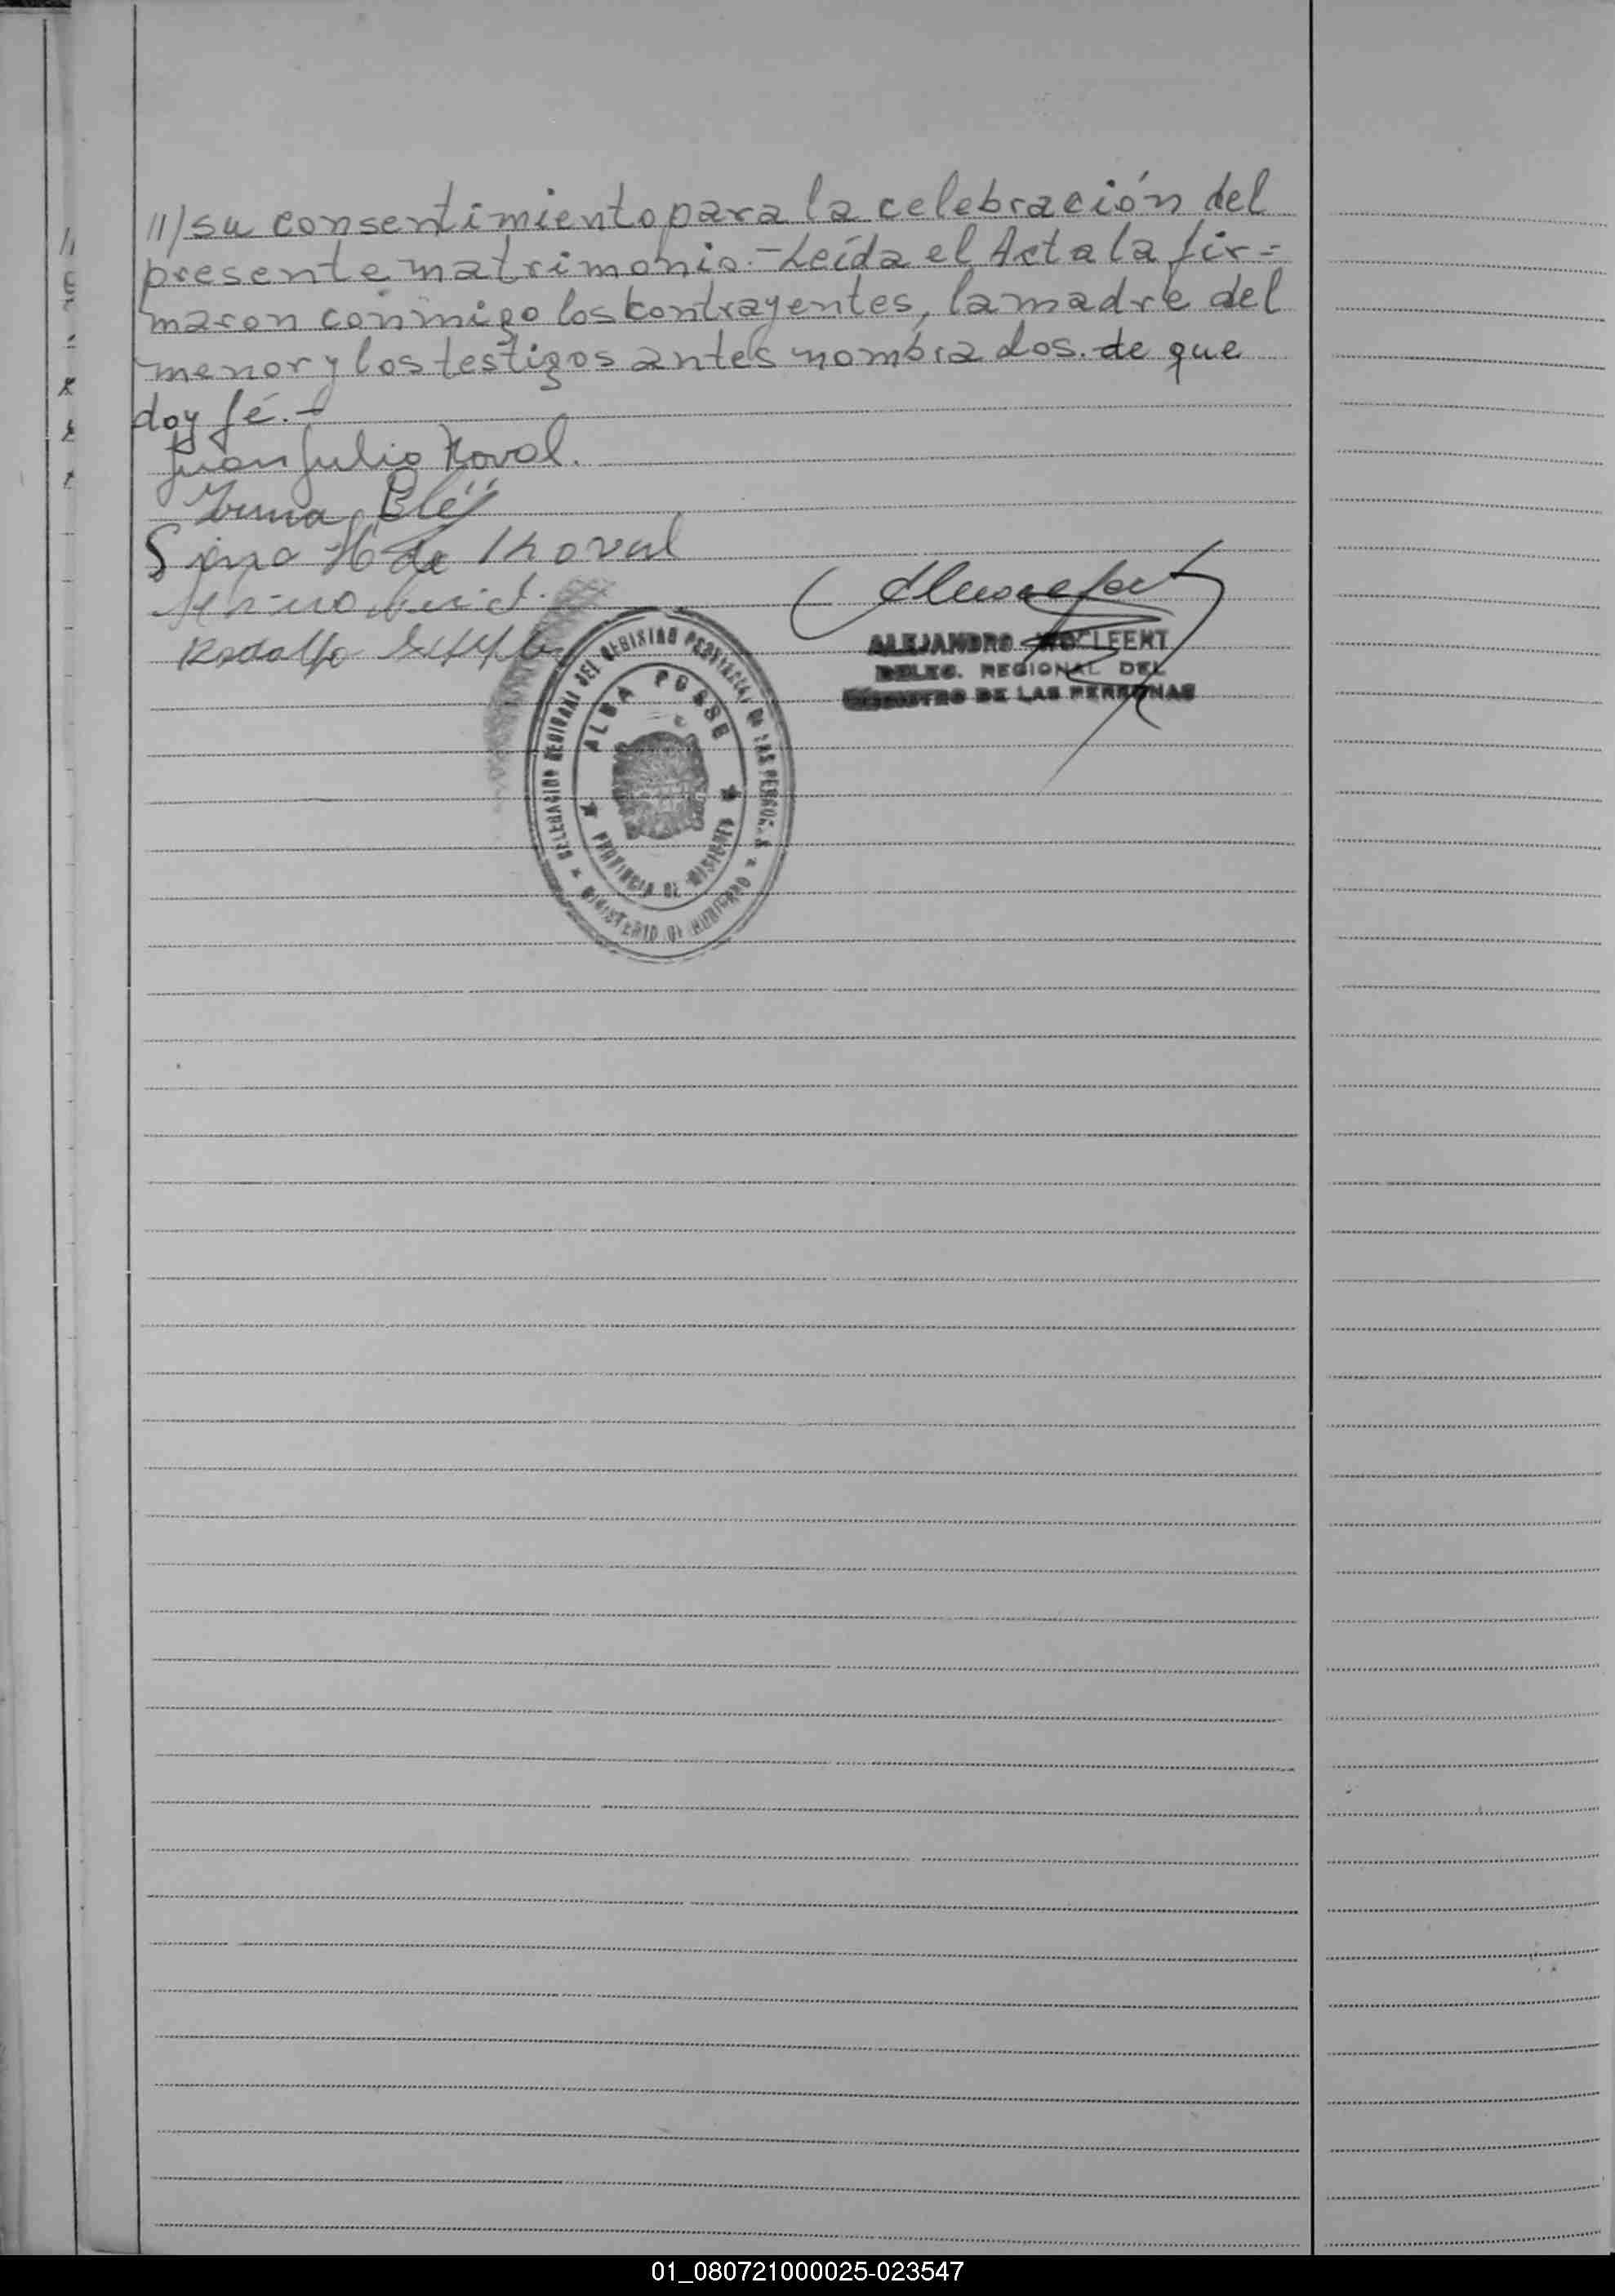 11/su consentimiento para la celebración del
presente matrimonio.-Leída el Acta la fir=
maron conmigo los contrayentes, la madre del
menor y los testigos antes nombrados. de que
doy fé.-
Juan Julio Koval.
Irma Bleÿ
H de Koval
Rodolfo
ALEJANDRO
DELEG. REGIONAL DEL
REGISTRO DE LAS PERSONAS
DELEGACION REGIONAL DEL REGISTRO PROVINCIAL DE LAS PERSONAS
ALBA POSSE
PROVINCIA DE MISIONES
MINISTERIO DE GOBIERNO
01_080721000025-023547